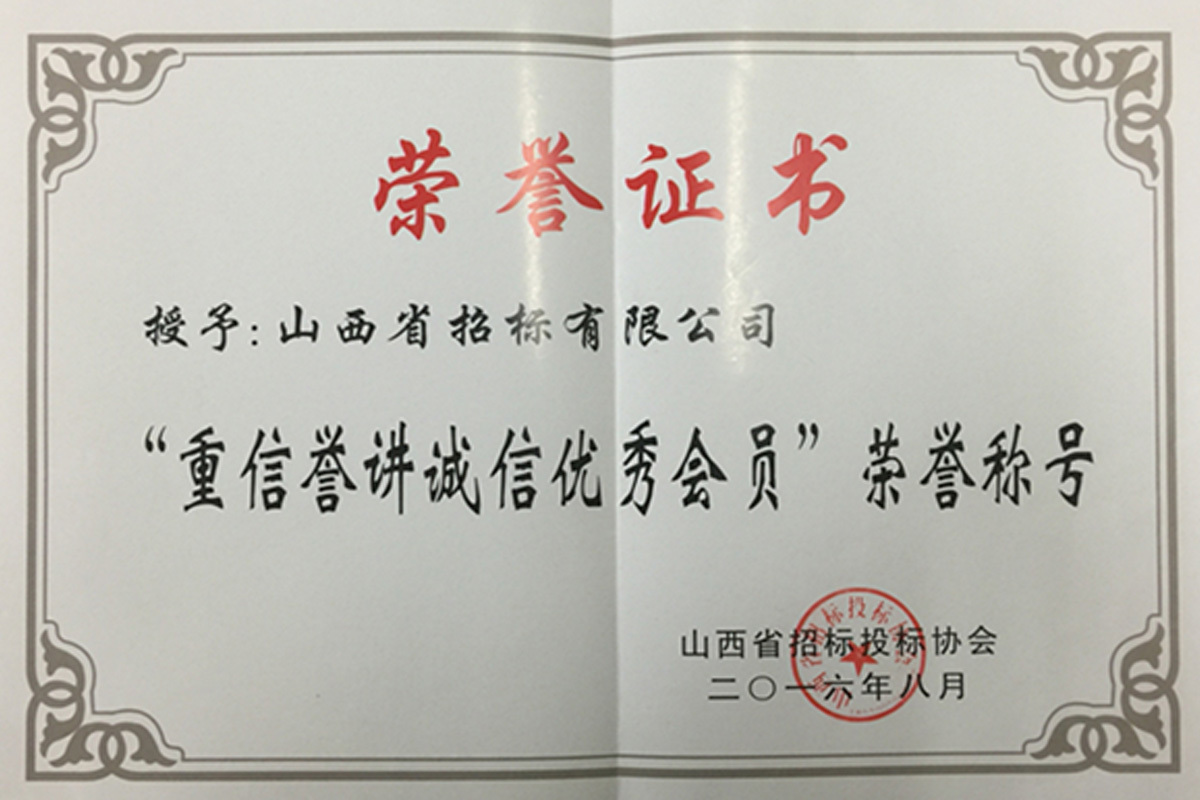 荣誉证书
授予:山西省招标有限公司
“重信誉讲诚信优秀会员”荣誉称号
山西省招标投标协会
二〇一六年八月
山西省招标投标协会